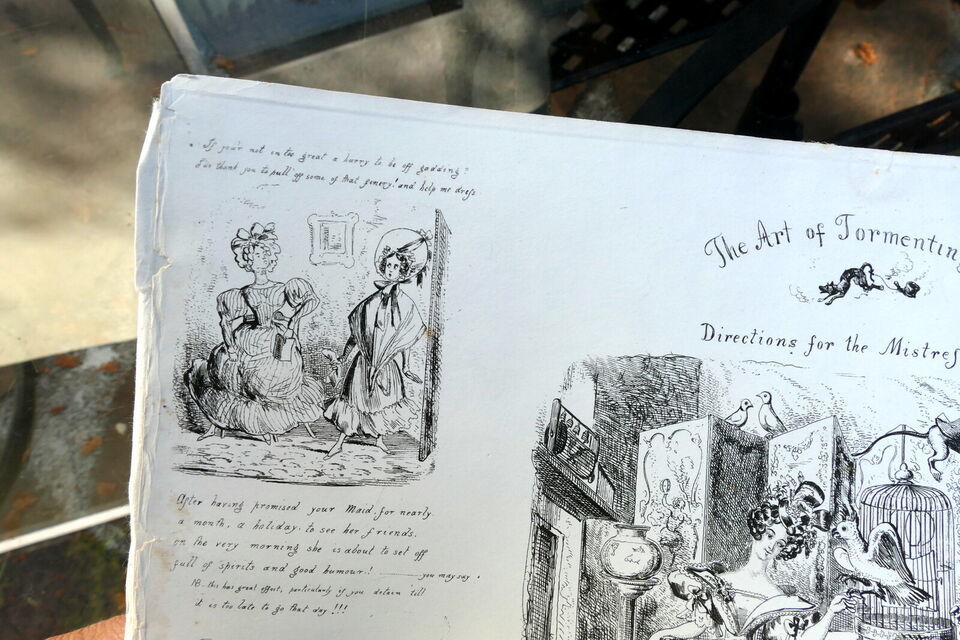 If you're not in too great a hurry to be off gadding?
I'll thank you to pull off some of that finery! and help me dress
The Art of Tormenting
Directions for the Mistres
After having promised your Maid, for nearly
a month, a holiday, to see her friends.
on the very morning she is about to set off
full of spirits and good humour.! you may say.
NB. this has great effect, particularly if you detain till
it is too late to go that day !!!